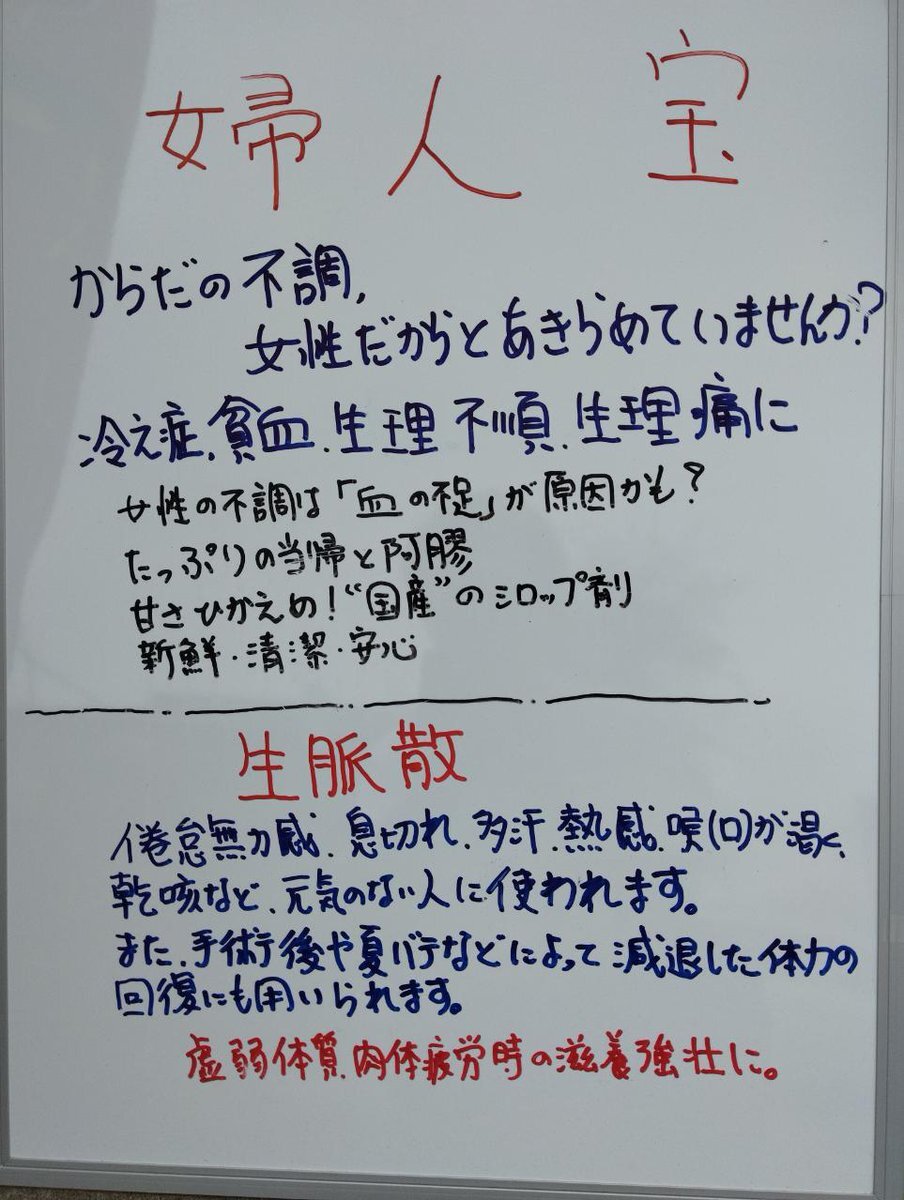 婦人宝
からだの不調、
女性だからとあきらめていませんか?
冷え症、貧血、生理不順、生理痛に
女性の不調は「血の不足」が原因かも?
たっぷりの当帰と阿膠
甘さひかえめ!“国産”のシロップ剤
新鮮・清潔・安心
生脈散
倦怠無力感、息切れ、多汗、熱感、喉(口)が渇く、
乾咳など、元気のない人に使われます。
また、手術後や夏バテなどによって減退した体力の
回復にも用いられます。
虚弱体質、肉体疲労時の滋養強壮に。